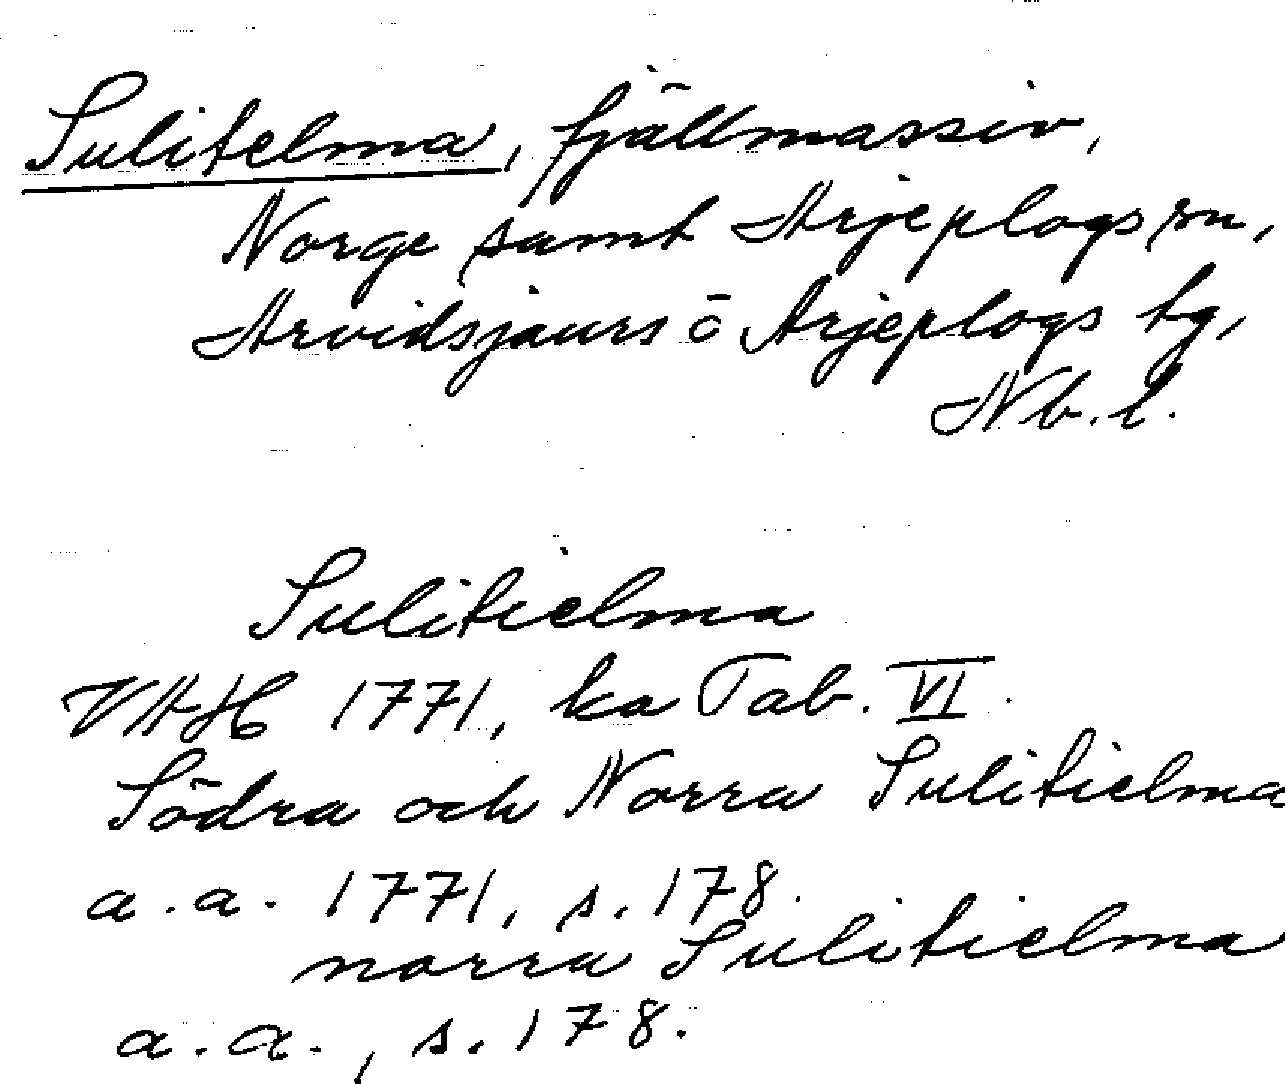 Sulitelma, fjällmassiv,
Norge samt Arjeplogs sn,
Arvidsjaurs o Arjeplogs tg,
Nb. l.
Sulitielma
VAH 1771, ka Tab. VI.
Södra och Norra Sulitielma
a.a. 1771, s. 178.
norra Sulitielma
a.a., s. 178.